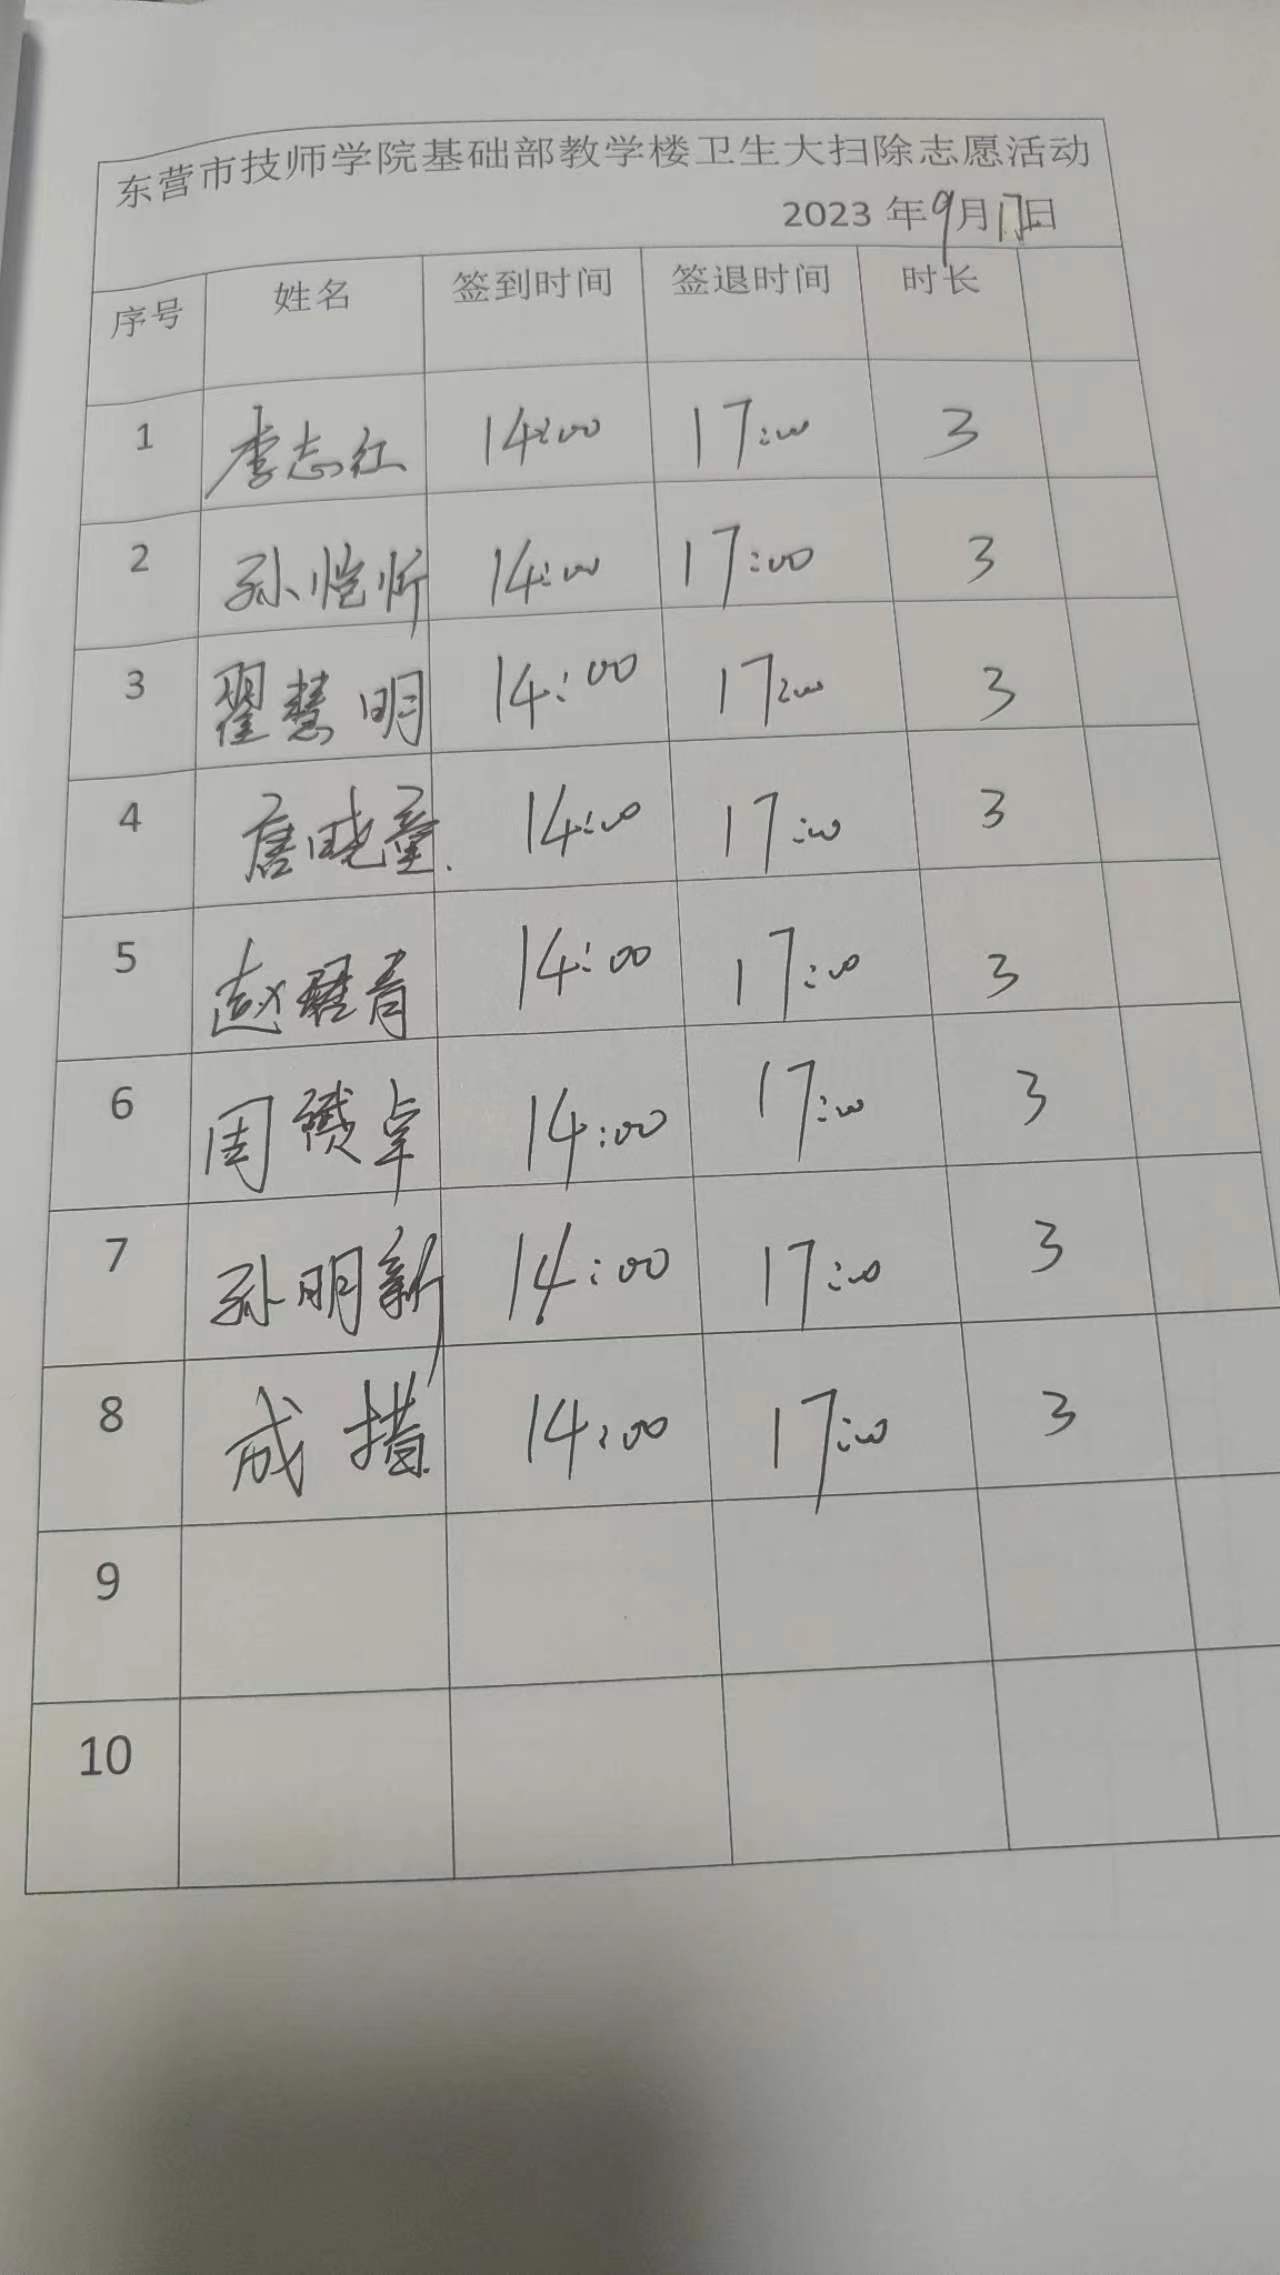 东营市技师学院基础部教学楼卫生大扫除志愿活动
2023 年9月17日
序号 姓名 签到时间 签退时间 时长
1 李志红 14:00 17:00 3
2 孙恺忻 14:00 17:00 3
3 翟慧明 14:00 17:00 3
4 唐晓童 14:00 17:00 3
5 赵 青 14:00 17:00 3
6 周赟卓 14:00 17:00 3
7 孙明新 14:00 17:00 3
8 成措 14:00 17:00 3
9
10